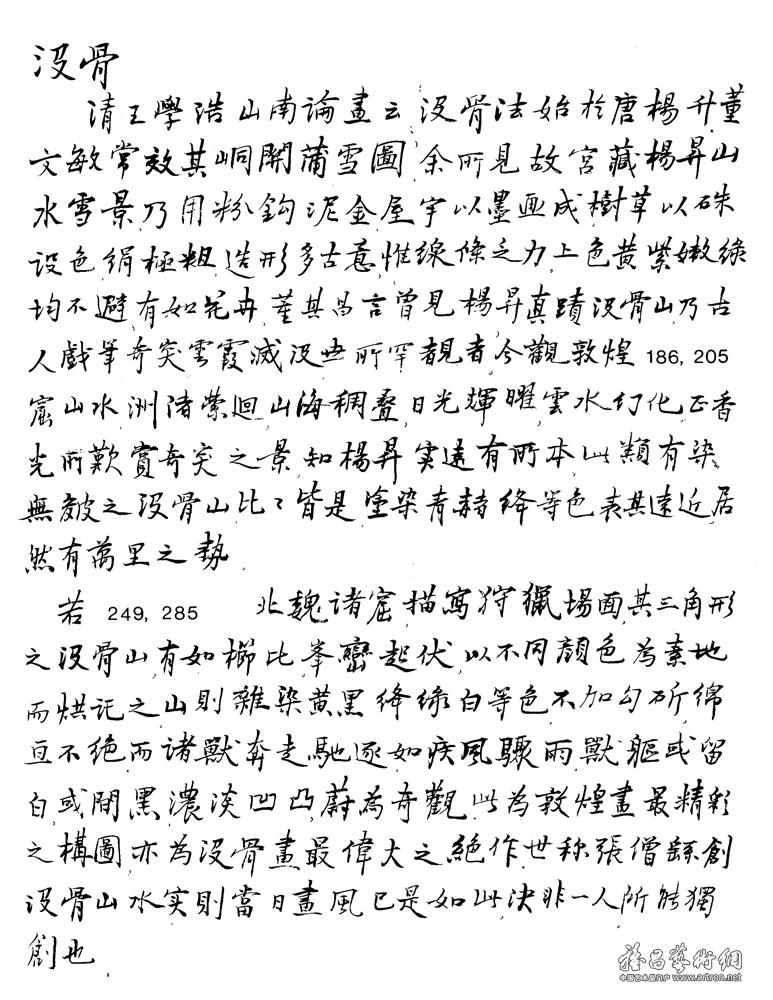 没骨
清王學浩山南論畫云 没骨法始於唐楊升董
文敏常效其峒關蒲雪圖 余所見故宮藏楊昇山
水雪景乃用粉鈎泥金屋宇以墨画成樹草以硃
設色絹極粗 造形多古意惟線條乏力上色黄紫嫩綠
均不避有如花卉 董其昌言曾見楊昇真蹟没骨山乃古
人戲筆奇突雲霞滅没世所罕覩者 今觀敦煌 186, 205
窟山水洲渚縈迴山海稠叠日光輝曜雲水幻化正香
光所歎賞奇突之景知楊昇實遠有所本此類有染
無皴之没骨山比比皆是塗染青赭絳等色表其遠近居
然有萬里之勢
若 249, 285 北魏諸窟描寫狩獵場面其三角形
之没骨山有如櫛比峯巒起伏以不同顔色為素地
而烘託之山則雜染黄黑絳緑白等色不加勾斫綿
亘不絶而諸獸奔走馳逐如疾風驟雨獸軀或留
白或間黑濃淡凹凸蔚為奇觀此為敦煌畫最精彩
之構圖亦為没骨畫最偉大之絶作世称張僧繇創
没骨山水实則當日畫風已是如此決非一人所能獨
創也
雅昌藝術網
中国艺术品门户 www.artron.net